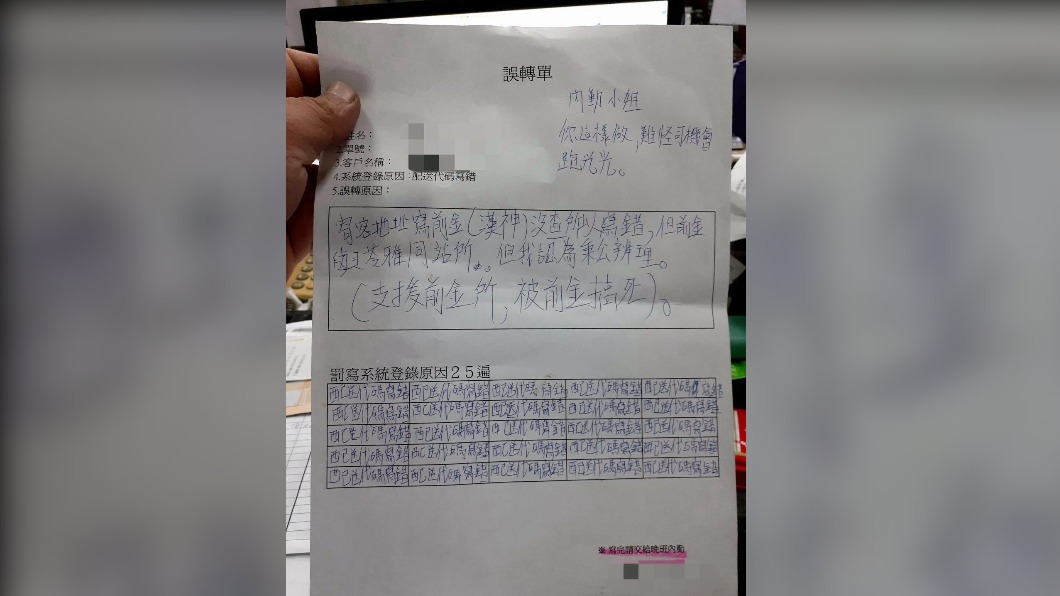 誤轉單
內勤小姐
你這樣做,難怪司機會
跑光光。
姓名:
2.單號:
3.客戶名稱:
4.系統登錄原因:配送代碼寫錯
5.誤轉原因:
寄客地址寫前金(漢神)沒查所以寫錯,但前金
苓雅同站所。但我認為秉公辨理。
(支援前金所,被前金搞死)。
罰寫系統登錄原因25遍
配送代碼寫錯 配送代碼寫錯 配送代碼寫錯 配送代碼寫錯 配送代碼寫錯
配送代碼寫錯 配送代碼寫錯 配送代碼寫錯 配送代碼寫錯 配送代碼寫錯
配送代碼寫錯 配送代碼寫錯 配送代碼寫錯 配送代碼寫錯 配送代碼寫錯
配送代碼寫錯 配送代碼寫錯 配送代碼寫錯 配送代碼寫錯 配送代碼寫錯
配送代碼寫錯 配送代碼寫錯 配送代碼寫錯 配送代碼寫錯 配送代碼寫錯
※寫完請交給晚班內勤